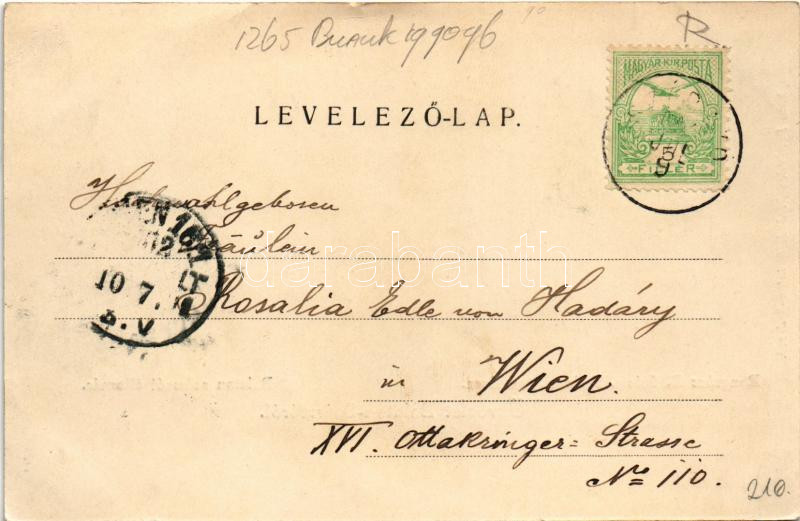 1265
R
LEVELEZŐ-LAP.
MAGYAR KIR. POSTA
5
FILLÉR
Hochwohlgeboren
Fräulein
Rosalia Edle von Hadáry
in
Wien.
XVI. Ottakringer= Strasse
No 110.
WIEN 16/1
10 7.
darabanth
210.